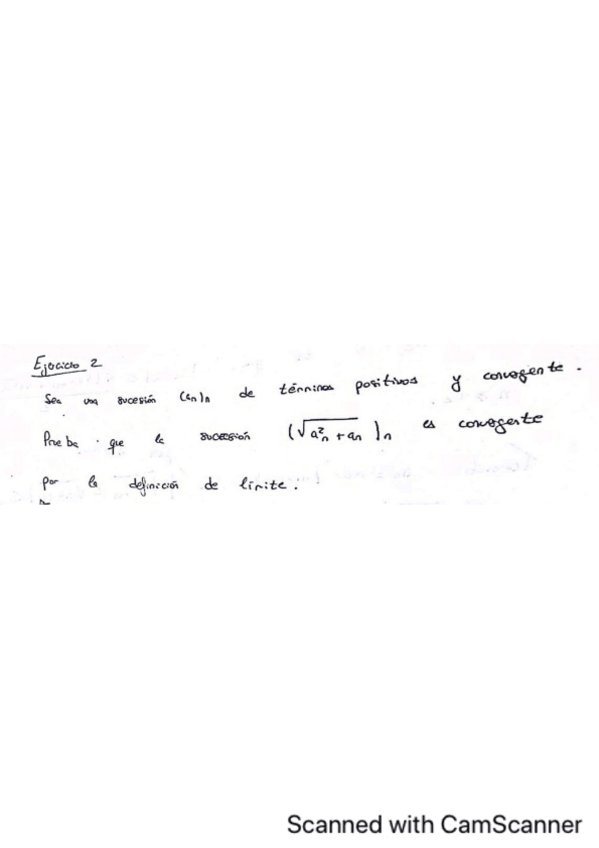 Ejercicio 2
Sea una sucesión (an)n de términos positivos y convergente.
Prueba que la sucesión (√a²n + an)n es convergente
por la definición de límite.
Scanned with CamScanner